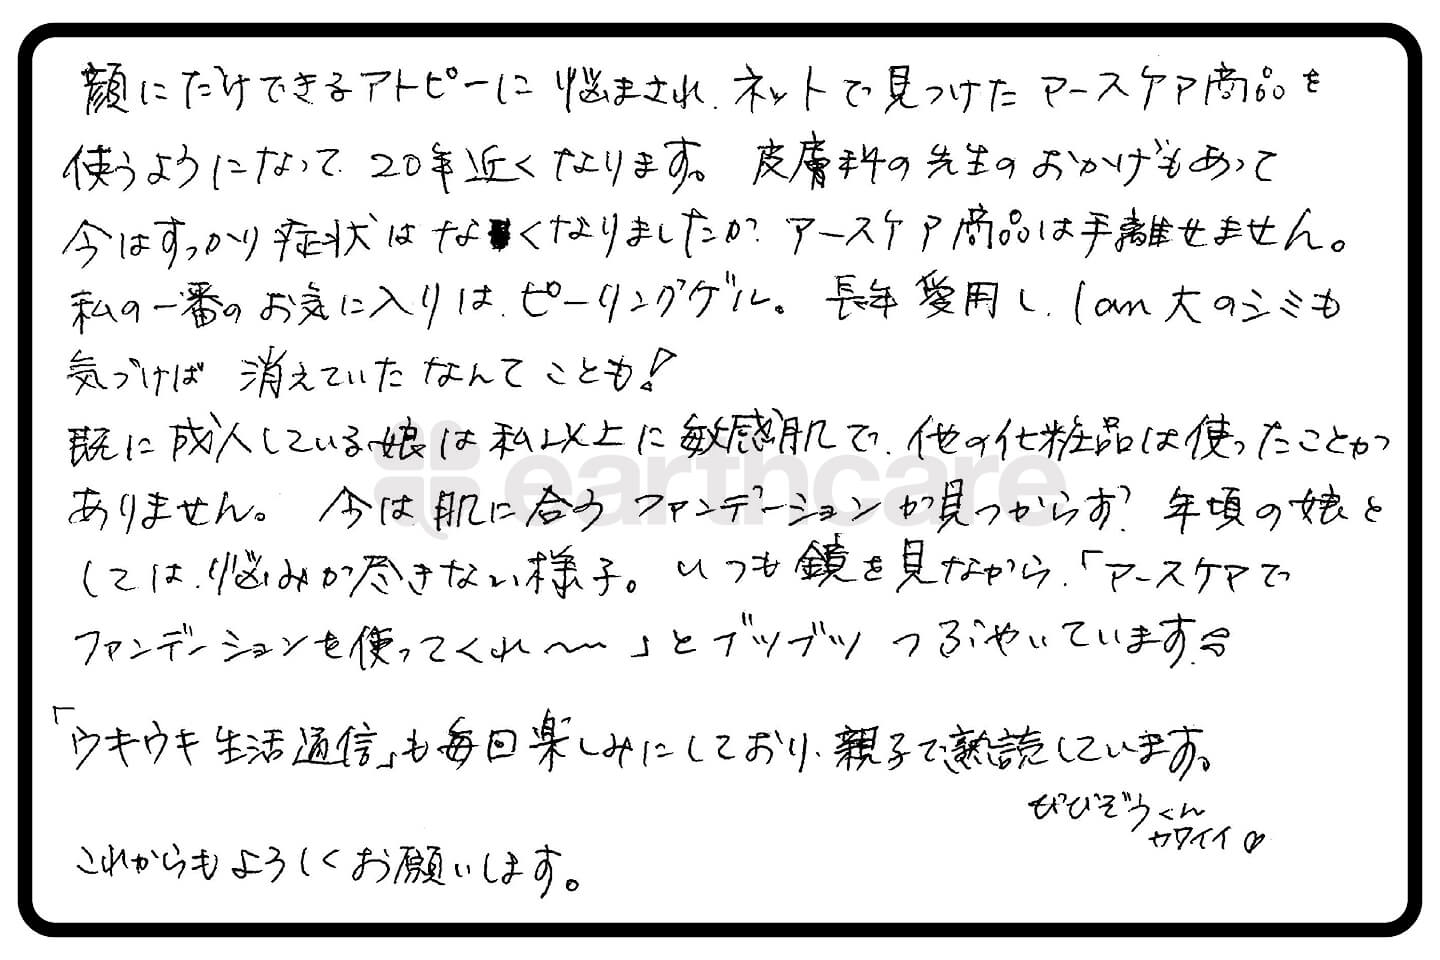 顔にだけできるアトピーに悩まされ、ネットで見つけたアースケア商品を
使うようになって20年近くなります。皮膚科の先生のおかげもあって
今はすっかり症状はなくなりましたが、アースケア商品は手離せません。
私の一番のお気に入りは、ピーリングゲル。長年愛用し、1cm大のシミも
気づけば消えていたなんてことも!
既に成人している娘は私以上に敏感肌で、他の化粧品は使ったことが
ありません。今は肌に合うファンデーションが見つからず、年頃の娘と
しては、悩みが尽きない様子。いつも鏡を見ながら、「アースケアで
ファンデーションを使ってくれ〜〜」とブツブツつぶやいています。
「ウキウキ生活通信」も毎回楽しみにしており、親子で熟読しています。
びぞうくん
カワイイ♡
これからもよろしくお願いします。
earthcare